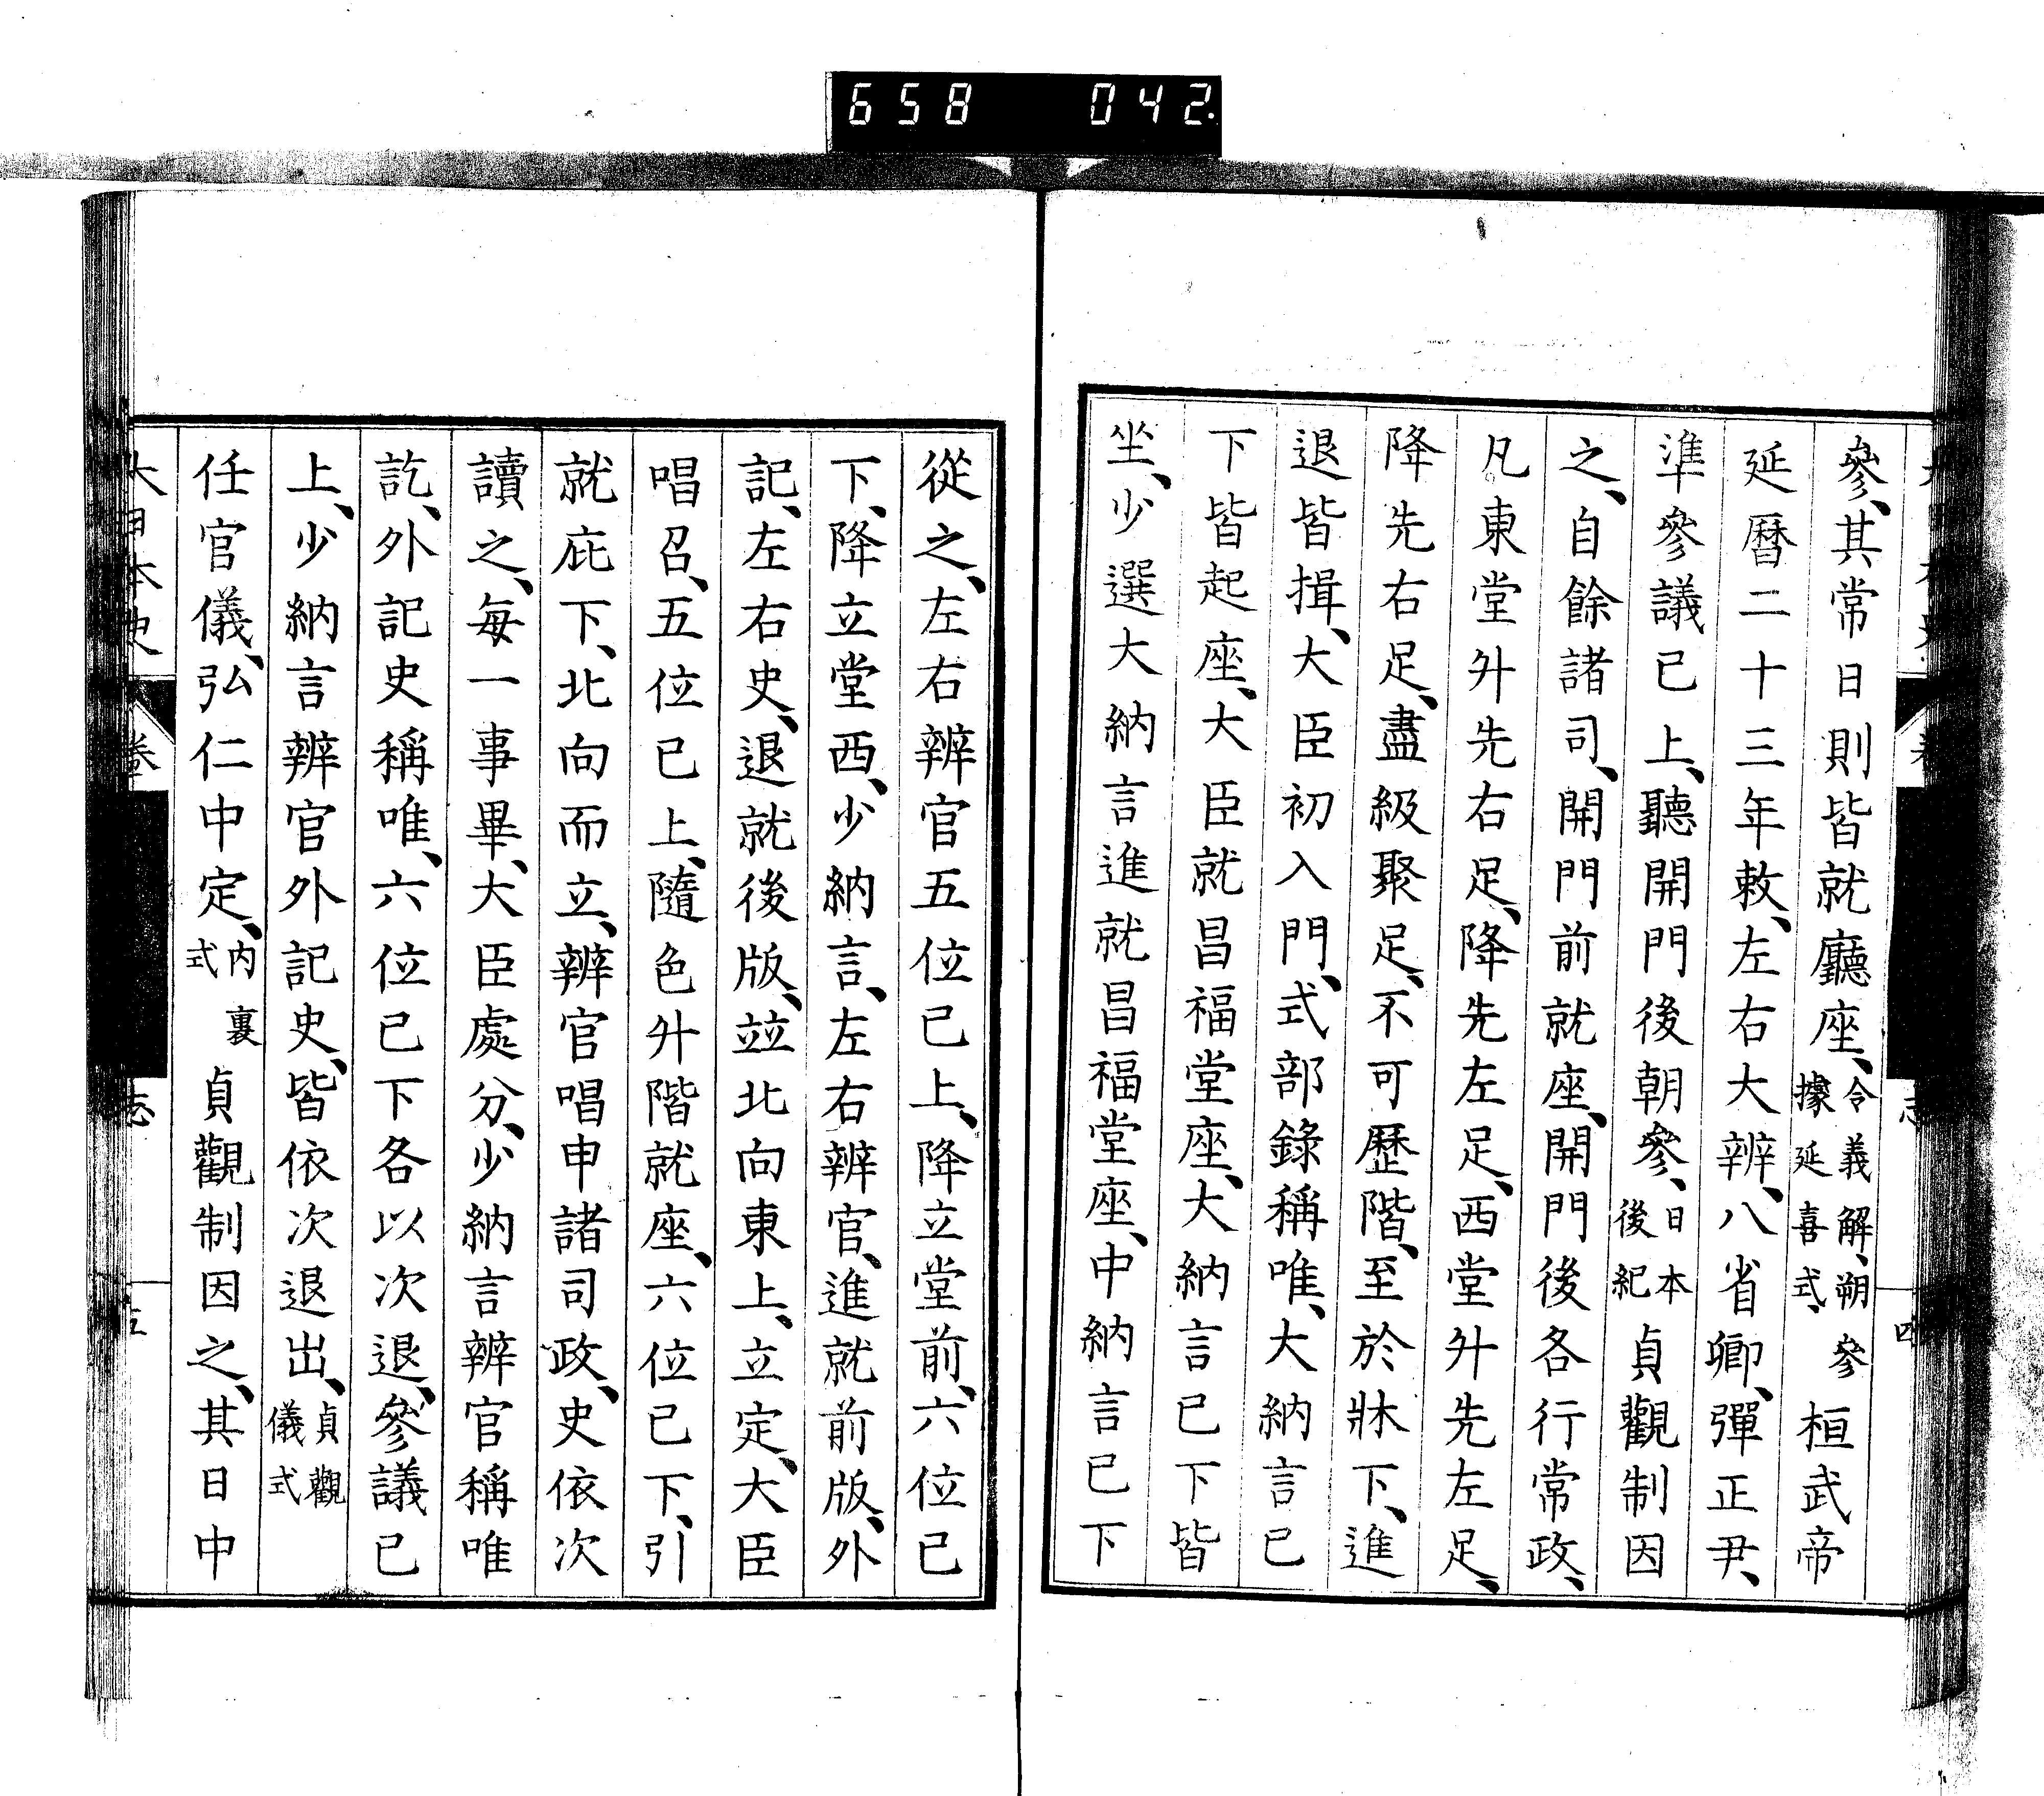 658 042.
參、其常日則皆就廳座、令義解、朔參據延喜式、桓武帝
延曆二十三年敕、左右大辨、八省卿、彈正尹、
準參議已上、聽開門後朝參、日本後紀貞觀制因
之、自餘諸司、開門前就座、開門後各行常政、
凡東堂升先右足、降先左足、西堂升先左足、
降先右足、盡級聚足、不可歷階、至於牀下、進
退皆揖、大臣初入門、式部錄稱唯、大納言已
下皆起座、大臣就昌福堂座、大納言已下皆
坐、少選大納言進就昌福堂座、中納言已下
從之、左右辨官五位已上、降立堂前、六位已
下、降立堂西、少納言、左右辨官、進就前版、外
記、左右史、退就後版、竝北向東上、立定、大臣
唱召、五位已上、隨色升階就座、六位已下、引
就庇下、北向而立、辨官唱申諸司政、史依次
讀之、每一事畢、大臣處分、少納言辨官稱唯
訖、外記史稱唯、六位已下各以次退、參議已
上、少納言辨官外記史、皆依次退出、貞觀儀式
任官儀、弘仁中定、內裏式貞觀制因之、其日中
大日本史 卷 志 五